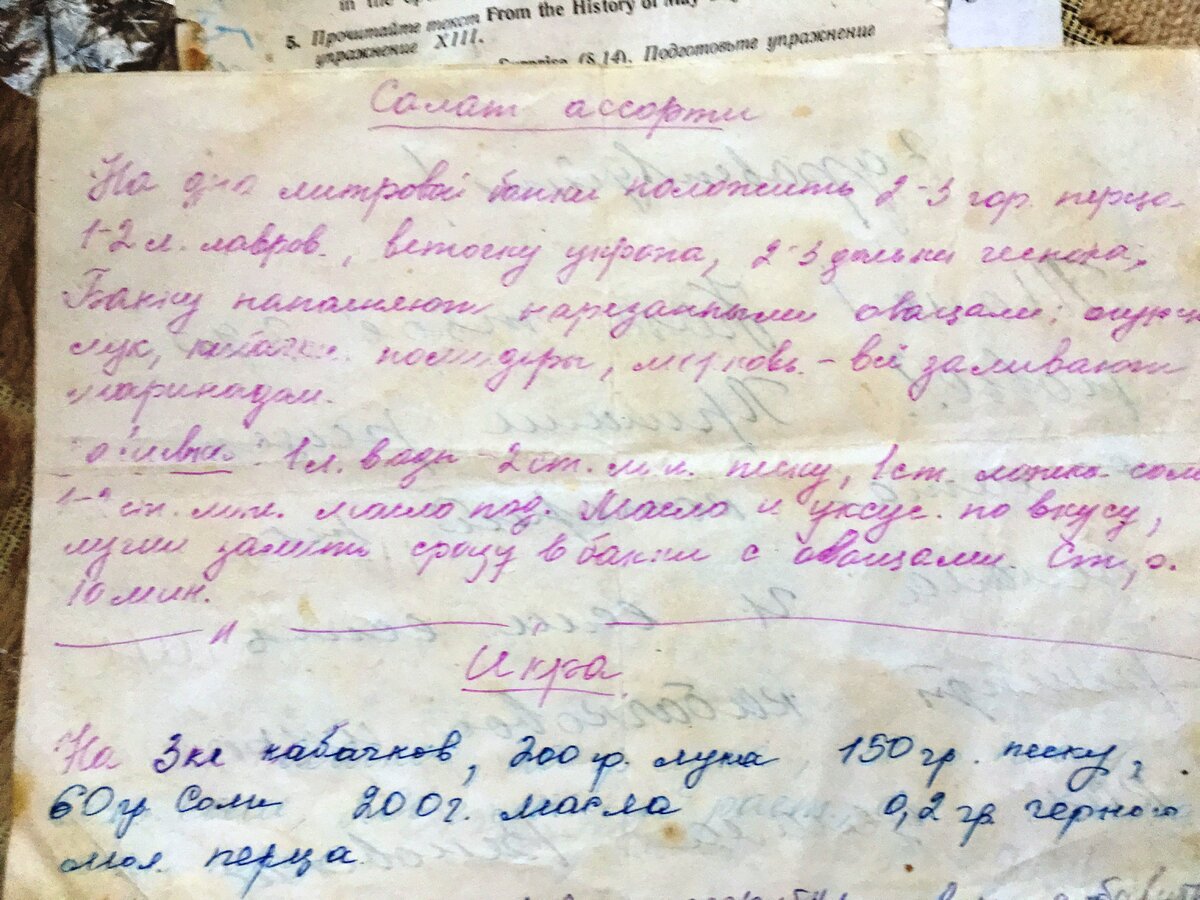 in the
From the History of May
5. Прочитайте текст
упражнение XIII.
Surprise (§ 14). Подготовьте упражнение
Салат ассорти
На дно литровой банки положить 2-3 гор. перца
1-2 л. лавров., веточку укропа, 2-3 дольки чеснока,
Банку наполняют нарезанными овощами:
лук, кабачки помидоры, морковь - всё заливают
маринадом.
1 л. воды 2 ст. лож. песку, 1 ст. ложка соли
ст. лож. масло под. Масло и уксус. по вкусу,
сразу в банки с овощами.
10 мин.
Икра
На 3 кг кабачков, 200 гр. лука 150 гр. песку,
60 гр соли 200 г. масла 0,2 гр черного
мол. перца